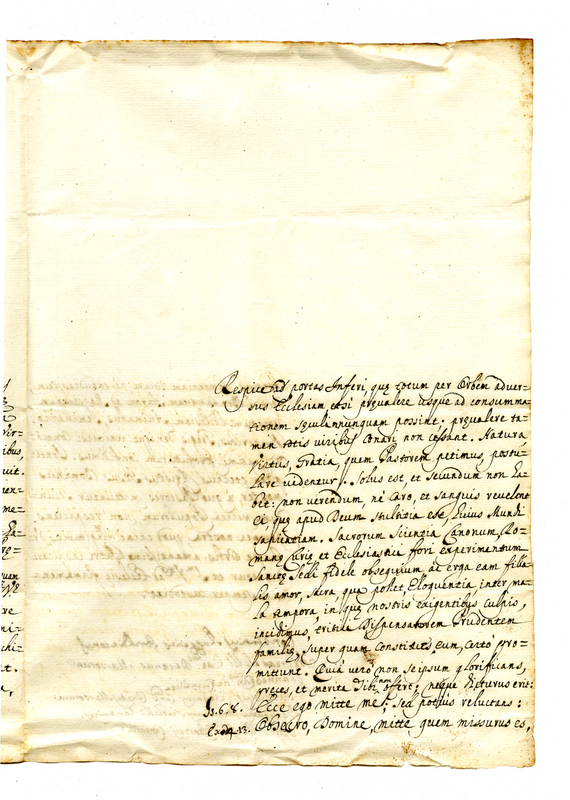 Respice ad portas Inferi, quę totum per Orbem adver-
sus Ecclesiam, etsi pręvalere usque ad consumma-
tionem Sęculi nunquam possint: pręvalere ta-
men totis viribus conari non cessant. Natura
Virtus, Gratia, quem Pastorem petimus, postu-
lare videntur. Solus est, et Secundum non ha-
bet: non verendum, nè Caro, et Sanguis revelent
Ei quę apud Deum stultitia est, huius Mundi
sapientiam. Sacrorum Scientia Canonum, Ro-
manę Curię et Ecclesiastici fori experimentum
Sanctę Sedi fidele obsequium ac erga eam filia-
lis amor, Sacra, qua pollet, Eloquentia, inter ma-
la tempora, in quę nostris exigentibus culpis,
incidimus, Dispensatorem Prudentem
familię, super quam Constitues eum, certò pro-
mittunt. Quià verò non seipsum glorificans,
preces, et merita Tibi offert; neque dicturus erit:
Is. 6. 8. Ecce ego mitte me; sed potius reluctans:
Exod. 4. 13. Obsecro, Domine, mitte quem missurus es,
vir-
ibus,
vit.
nan-
me-
quam
re
ni-
chi-
t.